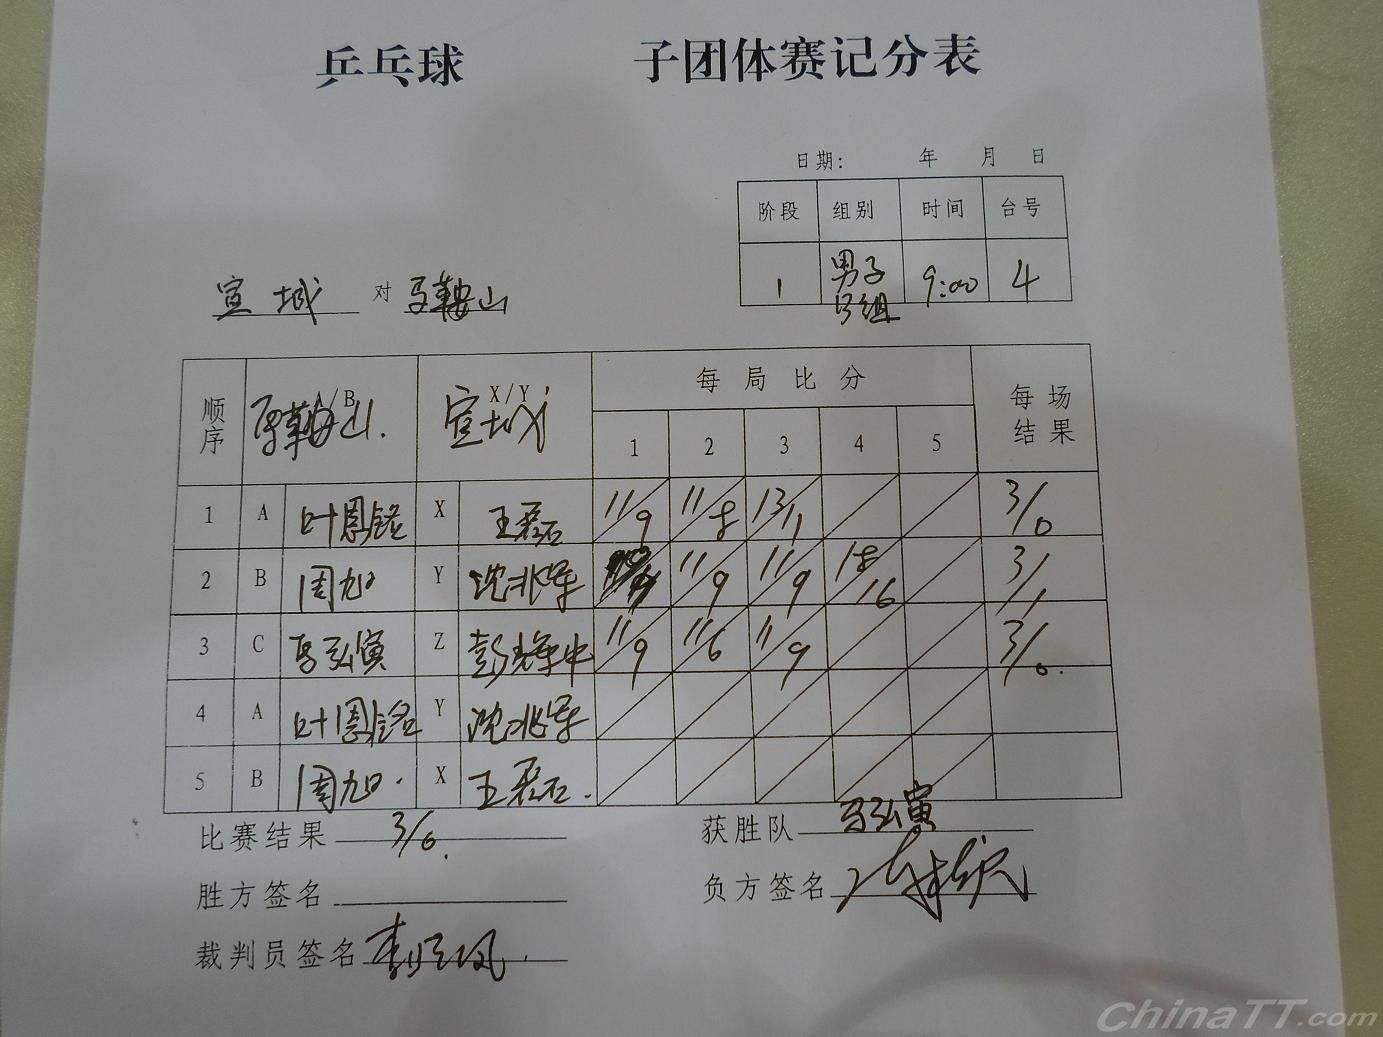 乒乓球 子团体赛记分表
日期: 年 月 日
阶段 组别 时间 台号
1 男子 9:00 4
组
宣城 对 马鞍山
顺序 A/B 马鞍山 X/Y 宣城 每局比分 每场结果
1 2 3 4 5
1 A 叶恩铭 X 王磊石 11/9 11/8 13/11 3/0
2 B 周旭 Y 沈兆军 11/9 11/9 18/16 3/1
3 C 马弘寅 Z 彭 11/9 11/6 11/9 3/0
4 A 叶恩铭 Y 沈兆军
5 B 周旭 X 王磊石
比赛结果 3/0 获胜队 马弘寅
胜方签名 负方签名
裁判员签名 李
ChinaTT.com